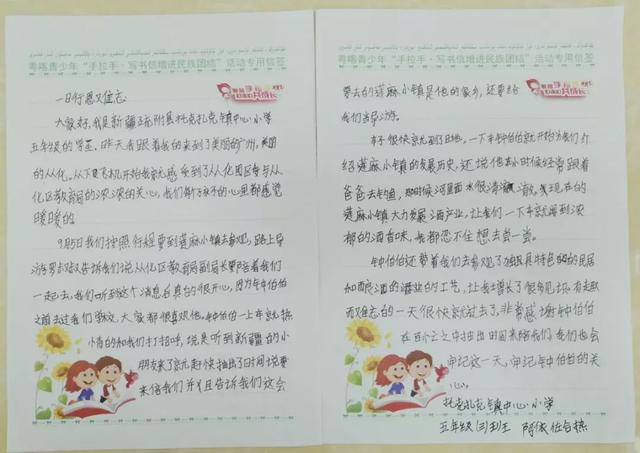 粤喀青少年“手拉手·写书信增进民族团结”活动专用信签
一日行恩义难忘
大家好,我是新疆疏附县托克扎克镇中心小学
五年级的学生。昨天我跟着我的来到了美丽的广州,美丽
的从化。从下飞机开始我就感受到了从化团委与从
化区教育局的浓浓的关心,我们的心里都感觉
暖暖的。
9月5日我们按照行程要到莲麻小镇去参观,路上导
游罗叔叔告诉我们说从化区教育局副局长要陪着我们
一起去,我们听到这个消息后真的很开心,因为钟伯伯
之前去过我们学校,大家都很喜欢他。钟伯伯一上车就热
情的和我们打招呼,说是听到新疆的小
朋友来了就赶快抽出了时间说要
来陪我们并且告诉我们这会
粤喀青少年“手拉手·写书信增进民族团结”活动专用信签
要去的莲麻小镇是他的家乡,还要给
我们当导游。
车子很快就到了目地。一下车钟伯伯就开始为我们介
绍莲麻小镇的发展历史,还说他小时候经常跟着
爸爸去钓鱼,那时候河里面水很清澈。发现在的
莲麻小镇大力发展酒产业,让我们一下车就闻到浓
郁的酒香味,我都忍不住想去尝一尝。
钟伯伯还带着我们去参观了极具特色的民居
和酿酒的酒业的工艺,让我增长了很多见识。有趣
而难忘的一天很快就过去了,非常感谢钟伯伯
在百忙之中抽出时间来陪我们,我们也会
牢记这一天,牢记钟伯伯的关
心。
托克扎克镇中心小学
五年级(3)班